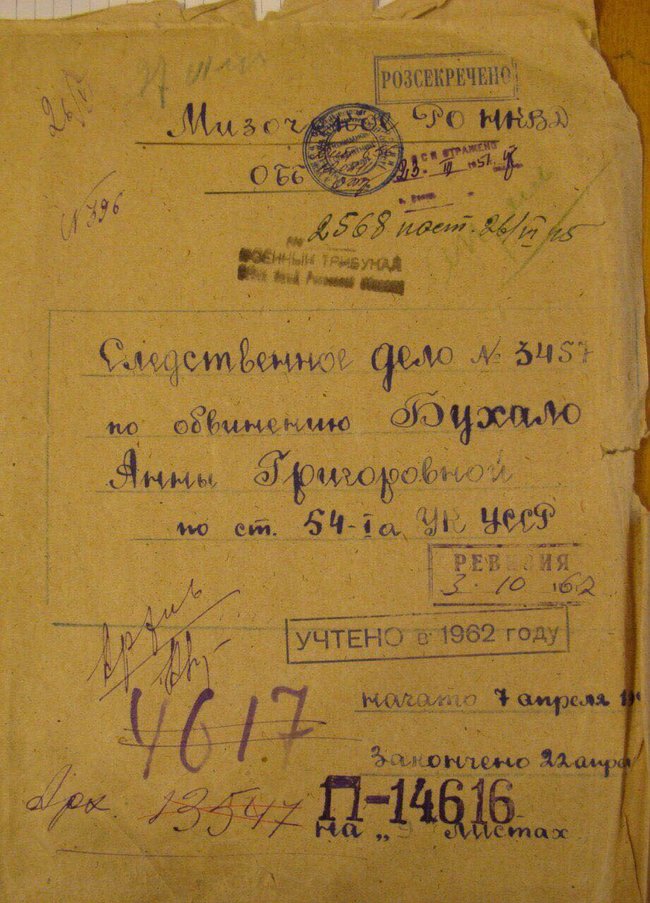 26/VI
РОЗСЕКРЕЧЕНО
Мизочское РО НКВД
ОББ
23 IV 1951
№ 396
2568 пост. 26/VI 45
ВОЕННЫЙ ТРИБУНАЛ
Следственное дело № 3457
по обвинению Бухало
Анны Григоровной
по ст. 54-Iа УК УССР
РЕВИЗИЯ
3-10 1962
УЧТЕНО в 1962 году
Архив
4617
начато 7 апреля 19
Закончено 22 апре
Арх. 13547
П-14616
на „9 листах